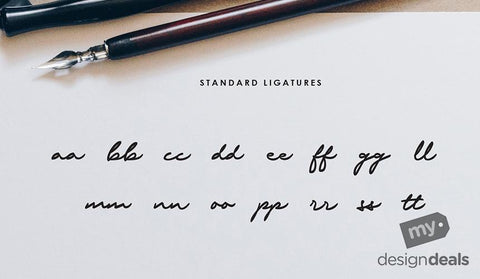 STANDARD LIGATURES
aa bb cc dd ee ff gg ll
mm nn oo pp rr ss tt
my
designdeals